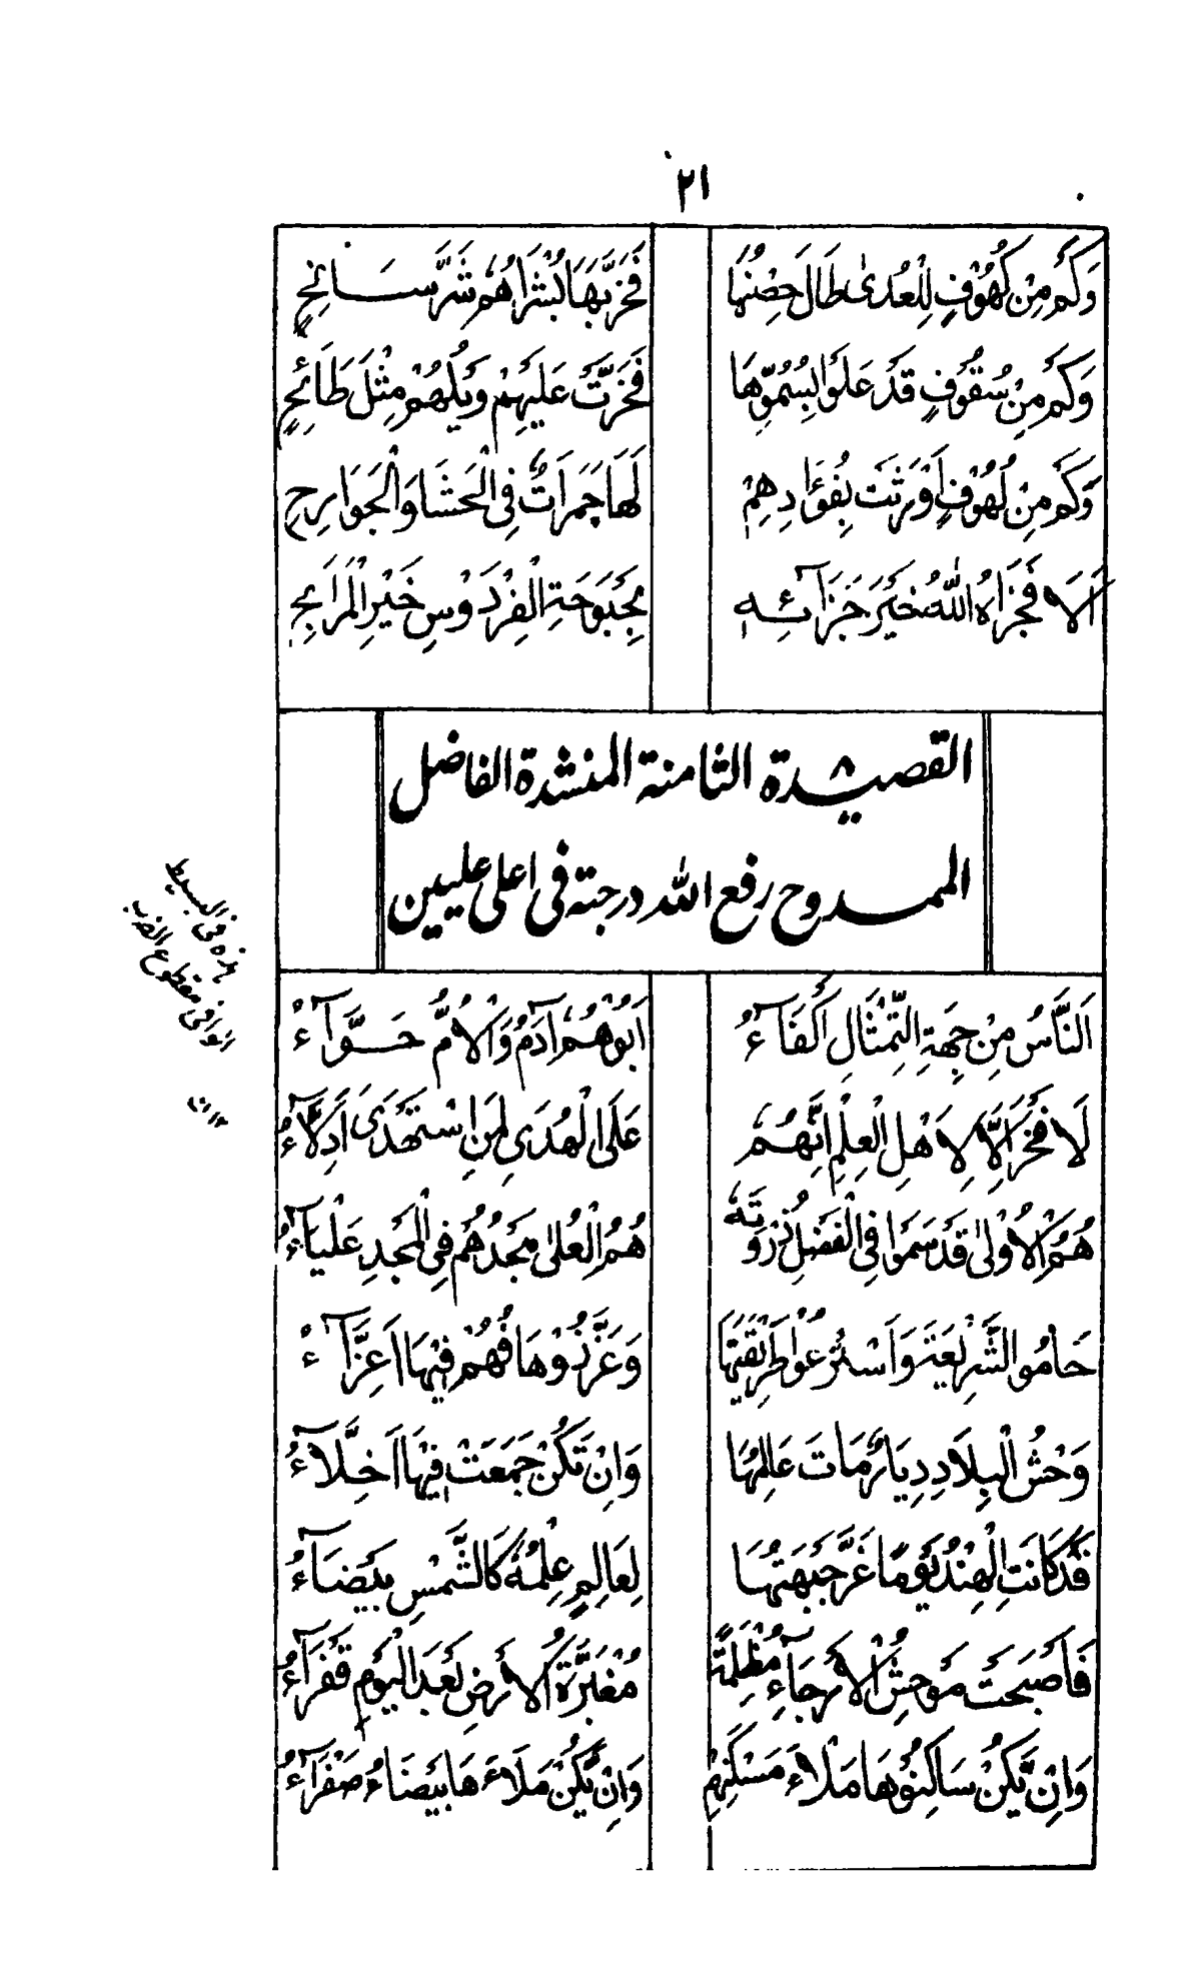 ٢١
وَكَمْ مِنْ كُهُوْفٍ لِلْعُدىٰ طَالَ حِصْنُهَا فَخَرَّبَهَا بُشْرَاهُمُ شَرَّ سَانِحٍ
وَكَمْ مِنْ سُقُوْفٍ قَدْ عَلَوْا بِسُمُوِّهَا فَخَرَّتْ عَلَيْهِمْ وَيْلَهُمْ مِثْلَ طَائِحٍ
وَكَمْ مِنْ لُهُوْفٍ اَوْرَثَتْ بِفُؤَادِهِمْ لَهَا جَمَرَاتٌ فِى الْحَشَا وَالْجَوَارِحِ
اَلَا فَجَزَاهُ اللهُ خَيْرَ جَزَآئِهٖ بِجَبْوَحَةِ الْفِرْدَوْسِ خَيْرِ الْمَرَابِحِ
القصيدة الثامنة المنشدة الفاضل
٨
الممدوح رفع الله درجته فى اعلى عليين
هذه فى البسيط
الوافى مقطوع الضرب
١٢ ن
اَلنَّاسُ مِنْ جِهَةِ التِّمْثَالِ اَكْفَآءُ اَبُوْهُمُ اٰدَمُ وَالْاُمُّ حَوَّآءُ
لَا فَخْرَ اِلَّا لِاَهْلِ الْعِلْمِ اِنَّهُمُ عَلَى الْهُدٰى لِمَنِ اسْتَهْدَىٰ اَدِلَّآءُ
هُمُ الْاُوْلىٰ قَدْ سَمَوْا فِى الْفَضْلِ ذِرْوَتَهٗ هُمُ الْعُلىٰ مَجْدُهُمْ فِى الْمَجْدِ عَلْيَآءُ
حَامُو الشَّرِيْعَةَ وَاَسْتَرْعُوْا طَرِيْقَتَهَا وَعَزَّزُوْهَا فَهُمْ فِيْهَا اَعِزَّآءُ
وَحْشُ الْبِلَادِ دِيَارٌ مَاتَ عَالِمُهَا وَاِنْ تَكُنْ جَمَعَتْ فِيْهَا اَخِلَّآءُ
قَدْ كَانَتِ الْهِنْدُ يَوْمًا غَرَّ جَبْهَتُهَا لِعَالِمٍ عِلْمُهٗ كَالشَّمْسِ بَيْضَآءُ
فَاَصْبَحَتْ مَوْحِشُ الْاَرْجَآءِ مُظْلِمَةً مُغْبَرَّةُ الْاَرْضِ بَعْدَ الْيَوْمِ قَفْرَآءُ
وَاِنْ يَّكُنْ سَاكِنُوْهَا مَلْاءَ مَسْكَنِهِمْ وَاِنْ يَّكُنْ مَلَاءَ هَا بَيْضَاءُ صَفْرَآءُ